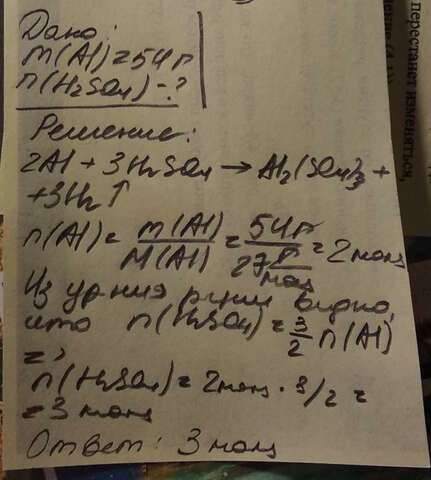 Дано:
m(Al)=54г
n(H₂SO₄)-?
Решение:
2Al + 3H₂SO₄ → Al₂(SO₄)₃ +
+3H₂↑
n(Al)= m(Al)/M(Al) = 54г/27г/моль = 2моль
Из ур-ния р-ции видно,
что n(H₂SO₄)=3/2 n(Al)
=>
n(H₂SO₄)= 2моль · 3/2 =
= 3 моль
Ответ: 3 моль
перестанет изменяться,